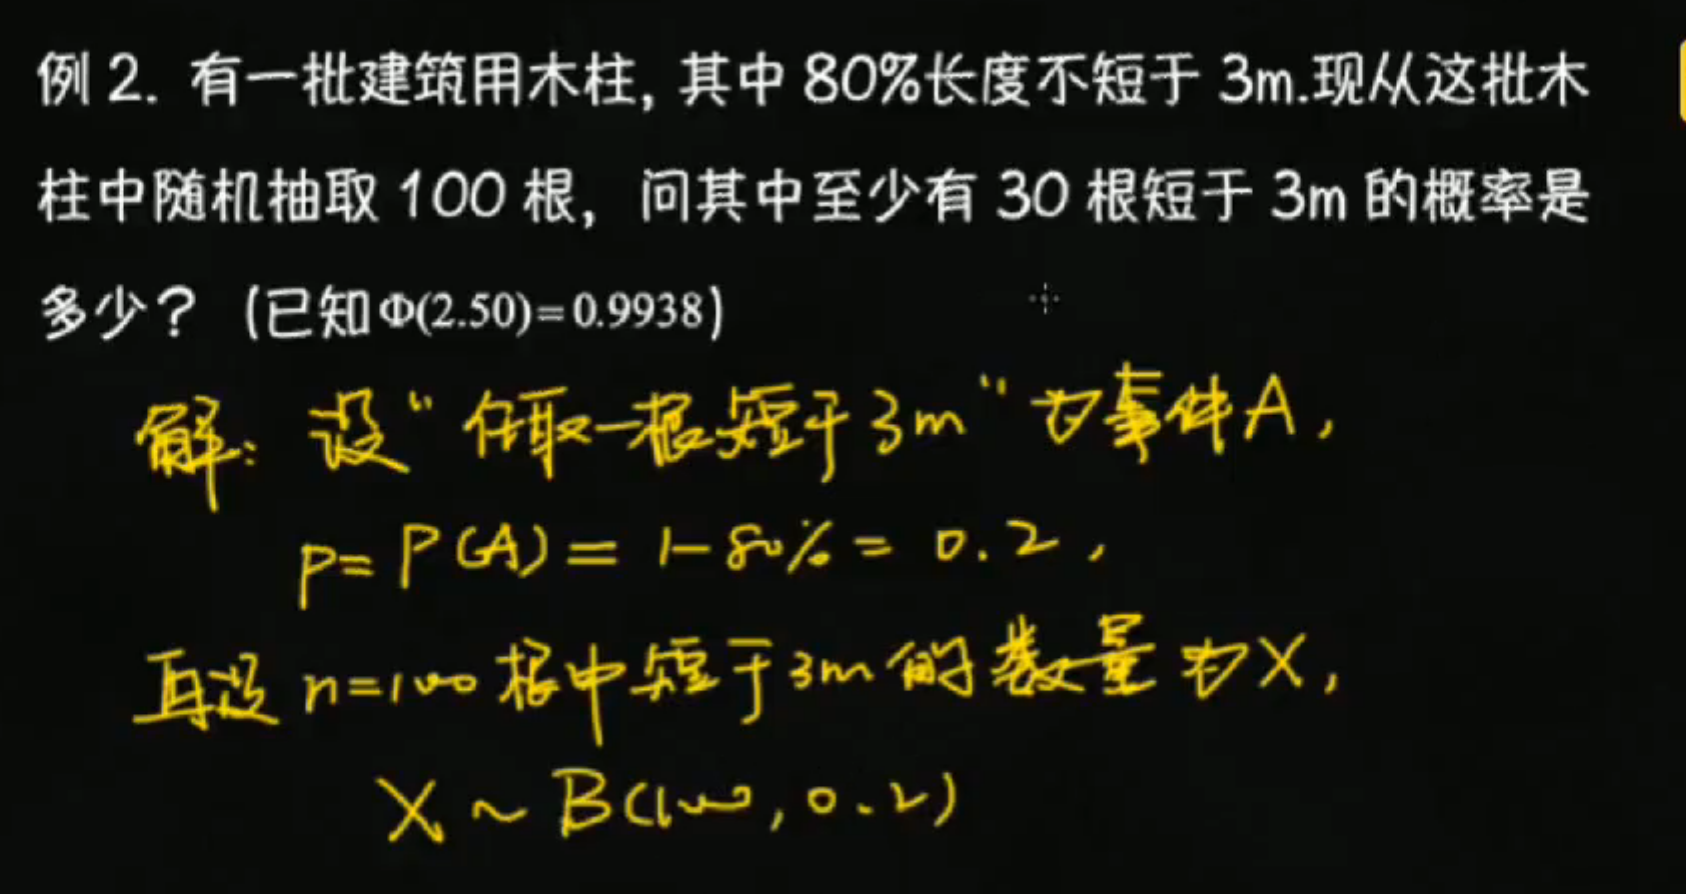 例 2. 有一批建筑用木柱, 其中 80%长度不短于 3m.现从这批木
柱中随机抽取 100 根, 问其中至少有 30 根短于 3m 的概率是
多少? (已知Φ(2.50)=0.9938)
解: 设“任取一根短于3m”为事件A,
P=P(A)=1-80%=0.2,
再设 n=100 根中短于3m的数量为X,
X~B(100,0.2)